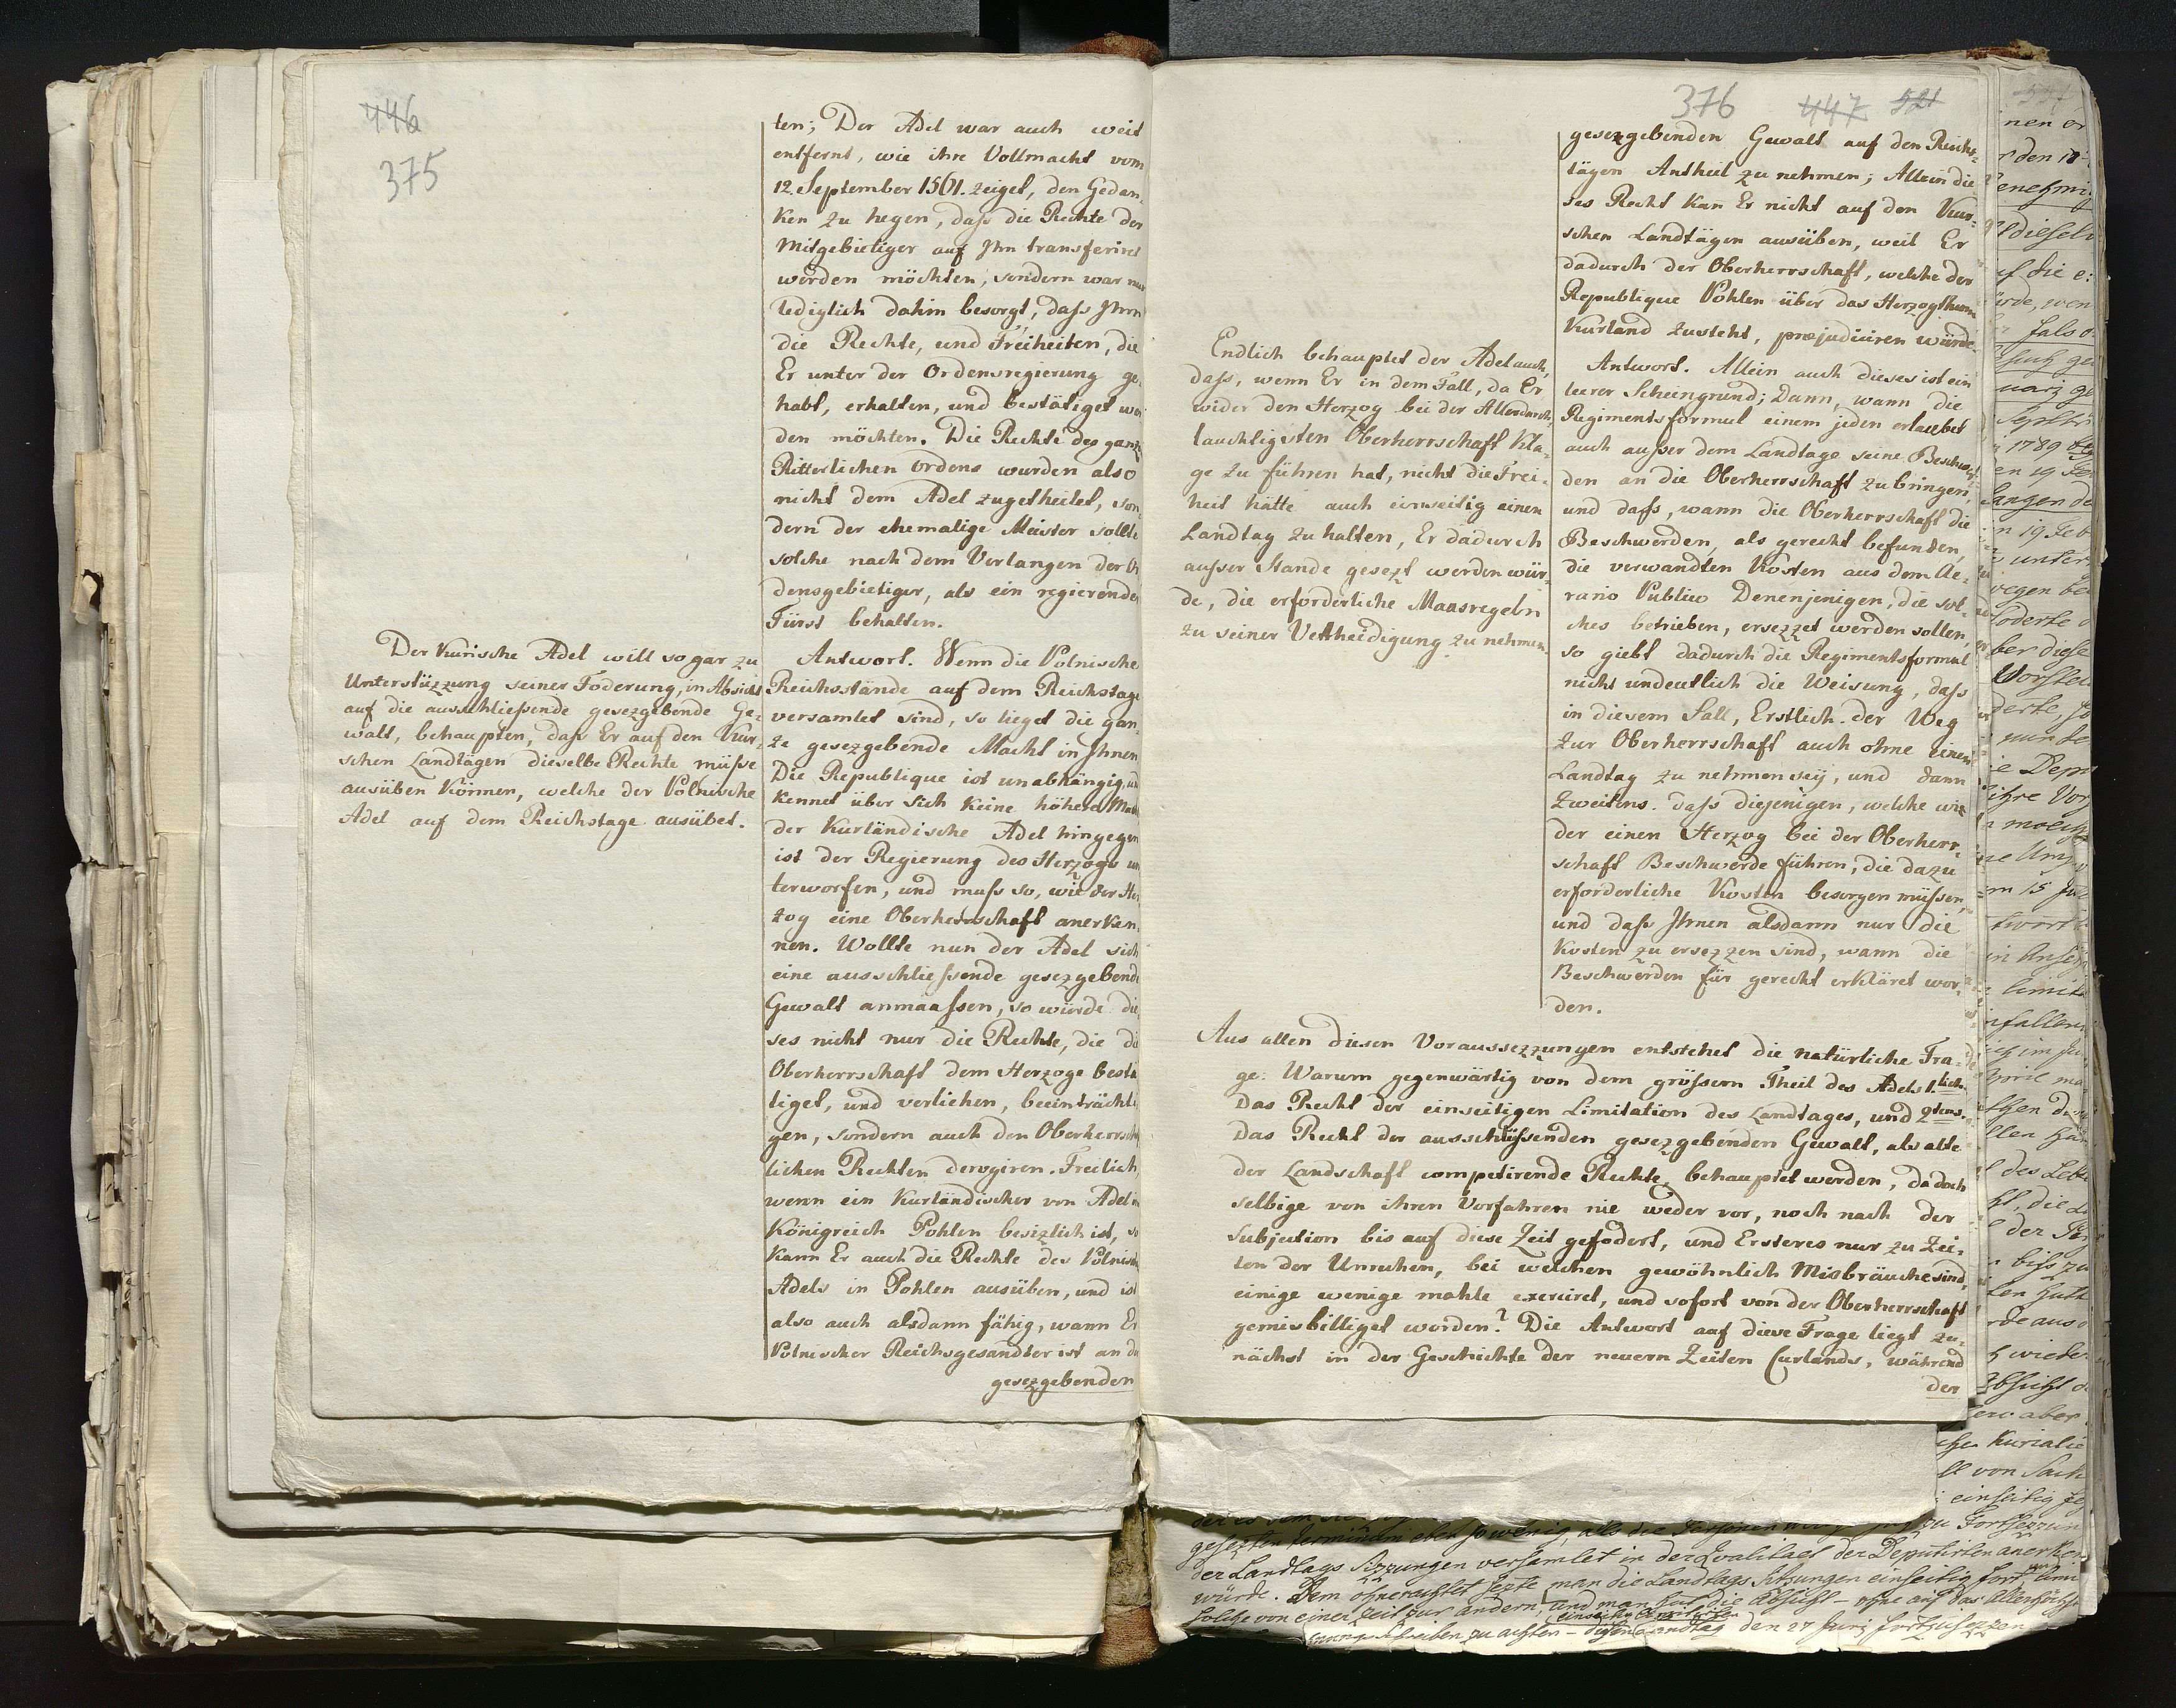 446
375
ten; Der Adel war auch weit
entfernt, wie ihre Vollmacht vom
12. September 1561. zeiget, den Gedan-
ken zu hegen, daſs die Rechte der
Mitgebietiger auf Ihn transferiret
werden möchten, sondern war nur
lediglich dahin besorgt, daſs Ihm
die Rechte, und Freiheiten, die
Er unter der Ordensregierung ge-
habt, erhalten, und bestätiget wer
den möchten. Die Rechte des ganz
Ritterlichen Ordens wurden also
nicht dem Adel zugetheilet, son-
dern der ehemalige Meister sollte
solche nach dem Verlangen der Or
densgebietiger, als ein regierender
Fürst behalten.
Der Kurische Adel will sogar zu
Unterstüzzung seiner Foderung, in Absicht
auf die ausschlieſsende gesezgebende Ge-
walt, behaupten, daſs Er auf den Kur-
schen Landtägen dieselbe Rechte müſse
ausüben können, welche der Polnische
Adel auf dem Reichstage ausübet.
Antwort. Wenn die Polnische
Reichsstände auf dem Reichstage
versamlet sind, so lieget die gan-
ze gesezgebende Macht in Ihnen
Die Republique ist unabhängig, und
kennet über sich keine höhere Macht
der Kurländische Adel hingegen
ist der Regierung des Herzogs un
terworfen, und muſs so, wie der Her
zog eine Oberherrschaft anerken-
nen. Wollte nun der Adel sich
eine ausschlieſsende gesezgebende
Gewalt anmaaſsen, so würde die
ses nicht nur die Rechte, die die
Oberherrschaft dem Herzoge bestä
tiget, und verliehen, beeinträchti
gen, sondern auch den Oberherrschaft
lichen Rechten derogiren. Freilich,
wenn ein Kurländischer von Adel im
Königreich Pohlen besizlich ist, so
kann Er auch die Rechte des Polnischen
Adels in Pohlen ausüben, und ist
also auch alsdann fähig, wann Er
Polnischer Reichsgesandter ist an der
gesezgebenden
376 447 521
gesezgebenden Gewalt auf den Reichs-
tägen Antheil zu nehmen; Allein die
ses Recht kan Er nicht auf den Kur-
schen Landtägen ausüben, weil Er
dadurch der Oberherrschaft, welche der
Republique Pohlen über das Herzogthum
Kurland zusteht, præjudiciren würde.
Endlich behauptet der Adel auch,
daſs, wenn Er in dem Fall, da Er
wider den Herzog bei der Allerdurch-
lauchtigsten Oberherrschaft Kla-
ge zu führen hat, nicht die Frei-
heit hätte auch einseitig einen
Landtag zu halten, Er dadurch
auſser Stande gesezt werden wür-
de, die erforderliche Maasregeln
zu seiner Vertheidigung zu nehmen.
Antwort. Allein auch dieses ist ein
leerer Scheingrund; Dann, wann die
Regimentsformul einem jeden erlaubet
auch auſser dem Landtage seine Beschwer-
den an die Oberherrschaft zu bringen,
und daſs, wann die Oberherrschaft die
Beschwerden, als gerecht befunden,
die verwandten Kosten aus dem Ae-
rario Publico Denenjenigen, die sol-
ches betrieben, ersezzet werden sollen,
so giebt dadurch die Regimentsformul
nicht undeutlich die Weisung, daſs
in diesem Fall, Erstlich. der Weg
zur Oberherrschaft auch ohne einen
Landtag zu nehmen seÿ, und dann
Zweitens. daſs diejenigen, welche wie
der einen Herzog bei der Oberherr-
schaft Beschwerde führen, die dazu
erforderliche Kosten besorgen müſsen,
und daſs Ihnen alsdann nur die
Kosten zu ersezzen sind, wann die
Beschwerden für gerecht erkläret wor-
den.
Aus allen diesen Voraussezzungen entstehet die natürliche Fra-
ge: Warum gegenwärtig von dem gröſsern Theil des Adels 1.tlich
Das Recht der einseitigen Limitation des Landtages, und 2tens.
Das Recht der ausschlüſsenden gesezgebenden Gewalt, als alte
der Landschaft competirende Rechte, behauptet werden, da doch
selbige von ihren Vorfahren nie weder vor, noch nach der
Subjection bis auf diese Zeit gefodert, und Ersteres nur zu Zei-
ten der Unruhen, bei welchen gewöhnlich Misbräuche sind,
einige wenige mahle exerciret, und sofort von der Oberherrschaft
gemisbilliget worden? Die Antwort auf diese Frage liegt zu-
nächst in der Geschichte der neuern Zeiten Curlands, während
der
gesezten termino eben so wenig, als die Personen zu Fortsezzun
der Landtags Sizzungen versamlet in der Qualitaet der Deputirten anerken
würde. Dem ohnerachtet sezte man die Landtags Sitzungen einseitig fort
solche von einer Zeit zur andern, und man hat die Absicht - ohne auf das Allerhöchste
schreiben zu achten - diesen Landtag den 27 Junj fortzusezzen